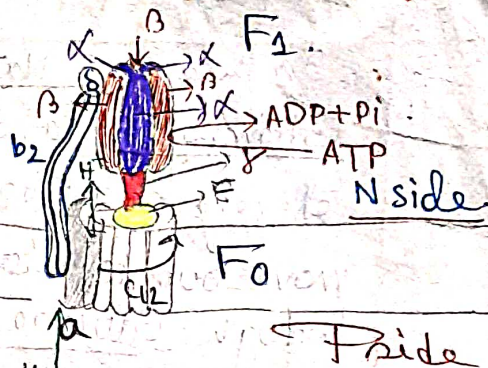 β F1.
α α
δ
β β
α
ADP+Pi
b2 γ ATP
H N side
E
F0
C12
a
P side